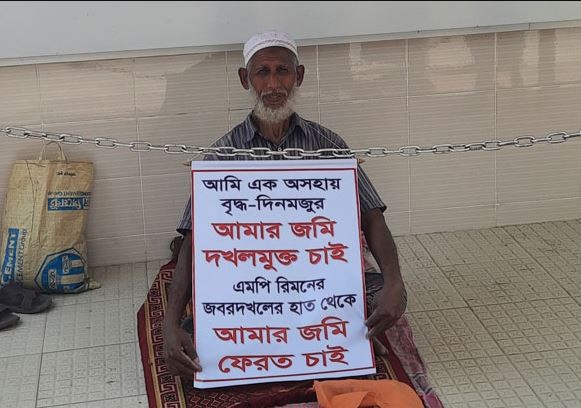 আমি এক অসহায়
বৃদ্ধ-দিনমজুর
আমার জমি
দখলমুক্ত চাই
এমপি রিমনের
জবরদখলের হাত থেকে
আমার জমি
ফেরত চাই
CEMENT